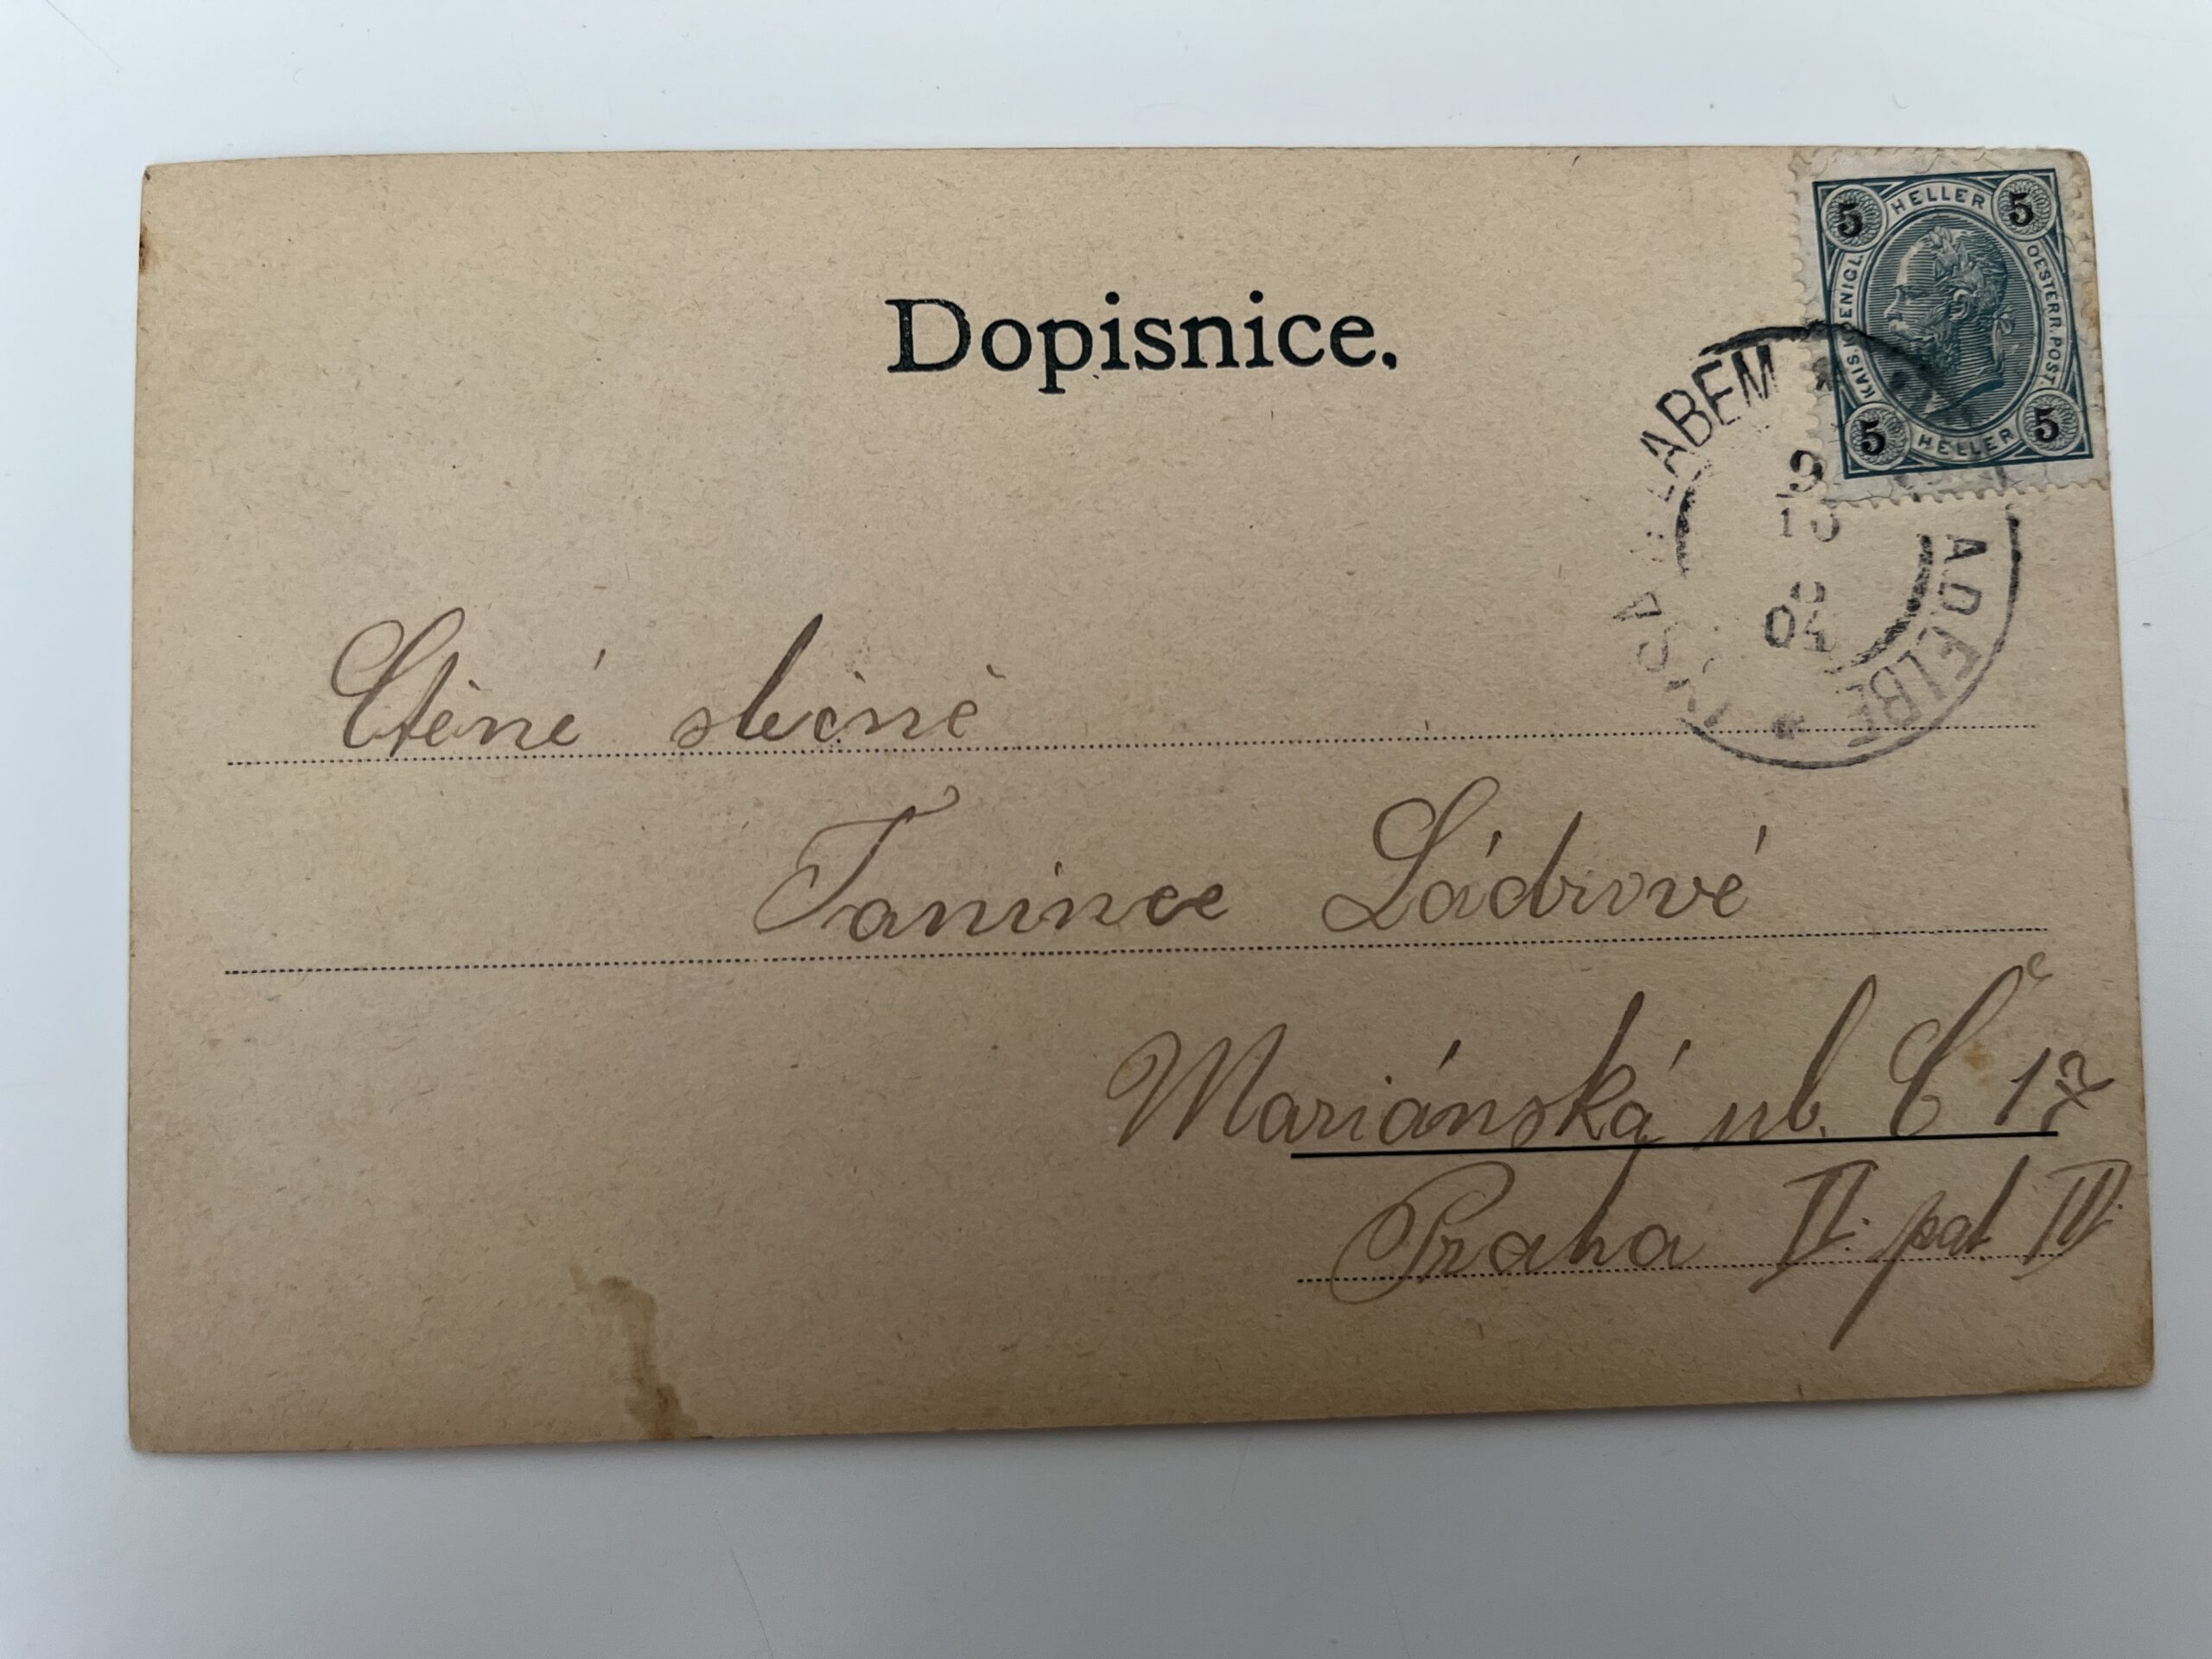 5 HELLER 5
KAIS. KOENIGL. OESTERR. POST.
5 HELLER 5
Dopisnice.
LYSÁ N. LABEM
9
10
04
AD ELBE
Ctěné slečně
Tanince Ládrové
Mariánská ul. Č 17
Praha II. pat. IV.